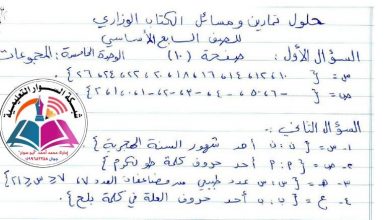 حلول تمارين ومسائل الكتاب الوزاري
للصف السابع الأساسي
السؤال الأول : صفحة (١٠) الوحدة الخامسة : المجموعات
س = { ١٠،١٢،١٤،١٦،١٨،٢٠،٢٢،٢٤،٢٦ }
السؤال الثاني :
١- س = { ن : ن أحد شهور السنة الهجرية }
٢- ص = { م : م أحد حروف كلمة طولكرم }
٣- هـ = { س : س عدد طبيعي من مضاعفات العدد ٧، ٧ ≤ س ≤ ٢١ }
٤- ع = { ن : ن أحد حروف العلة في كلمة بلح }
شبكة السوار التعليمية